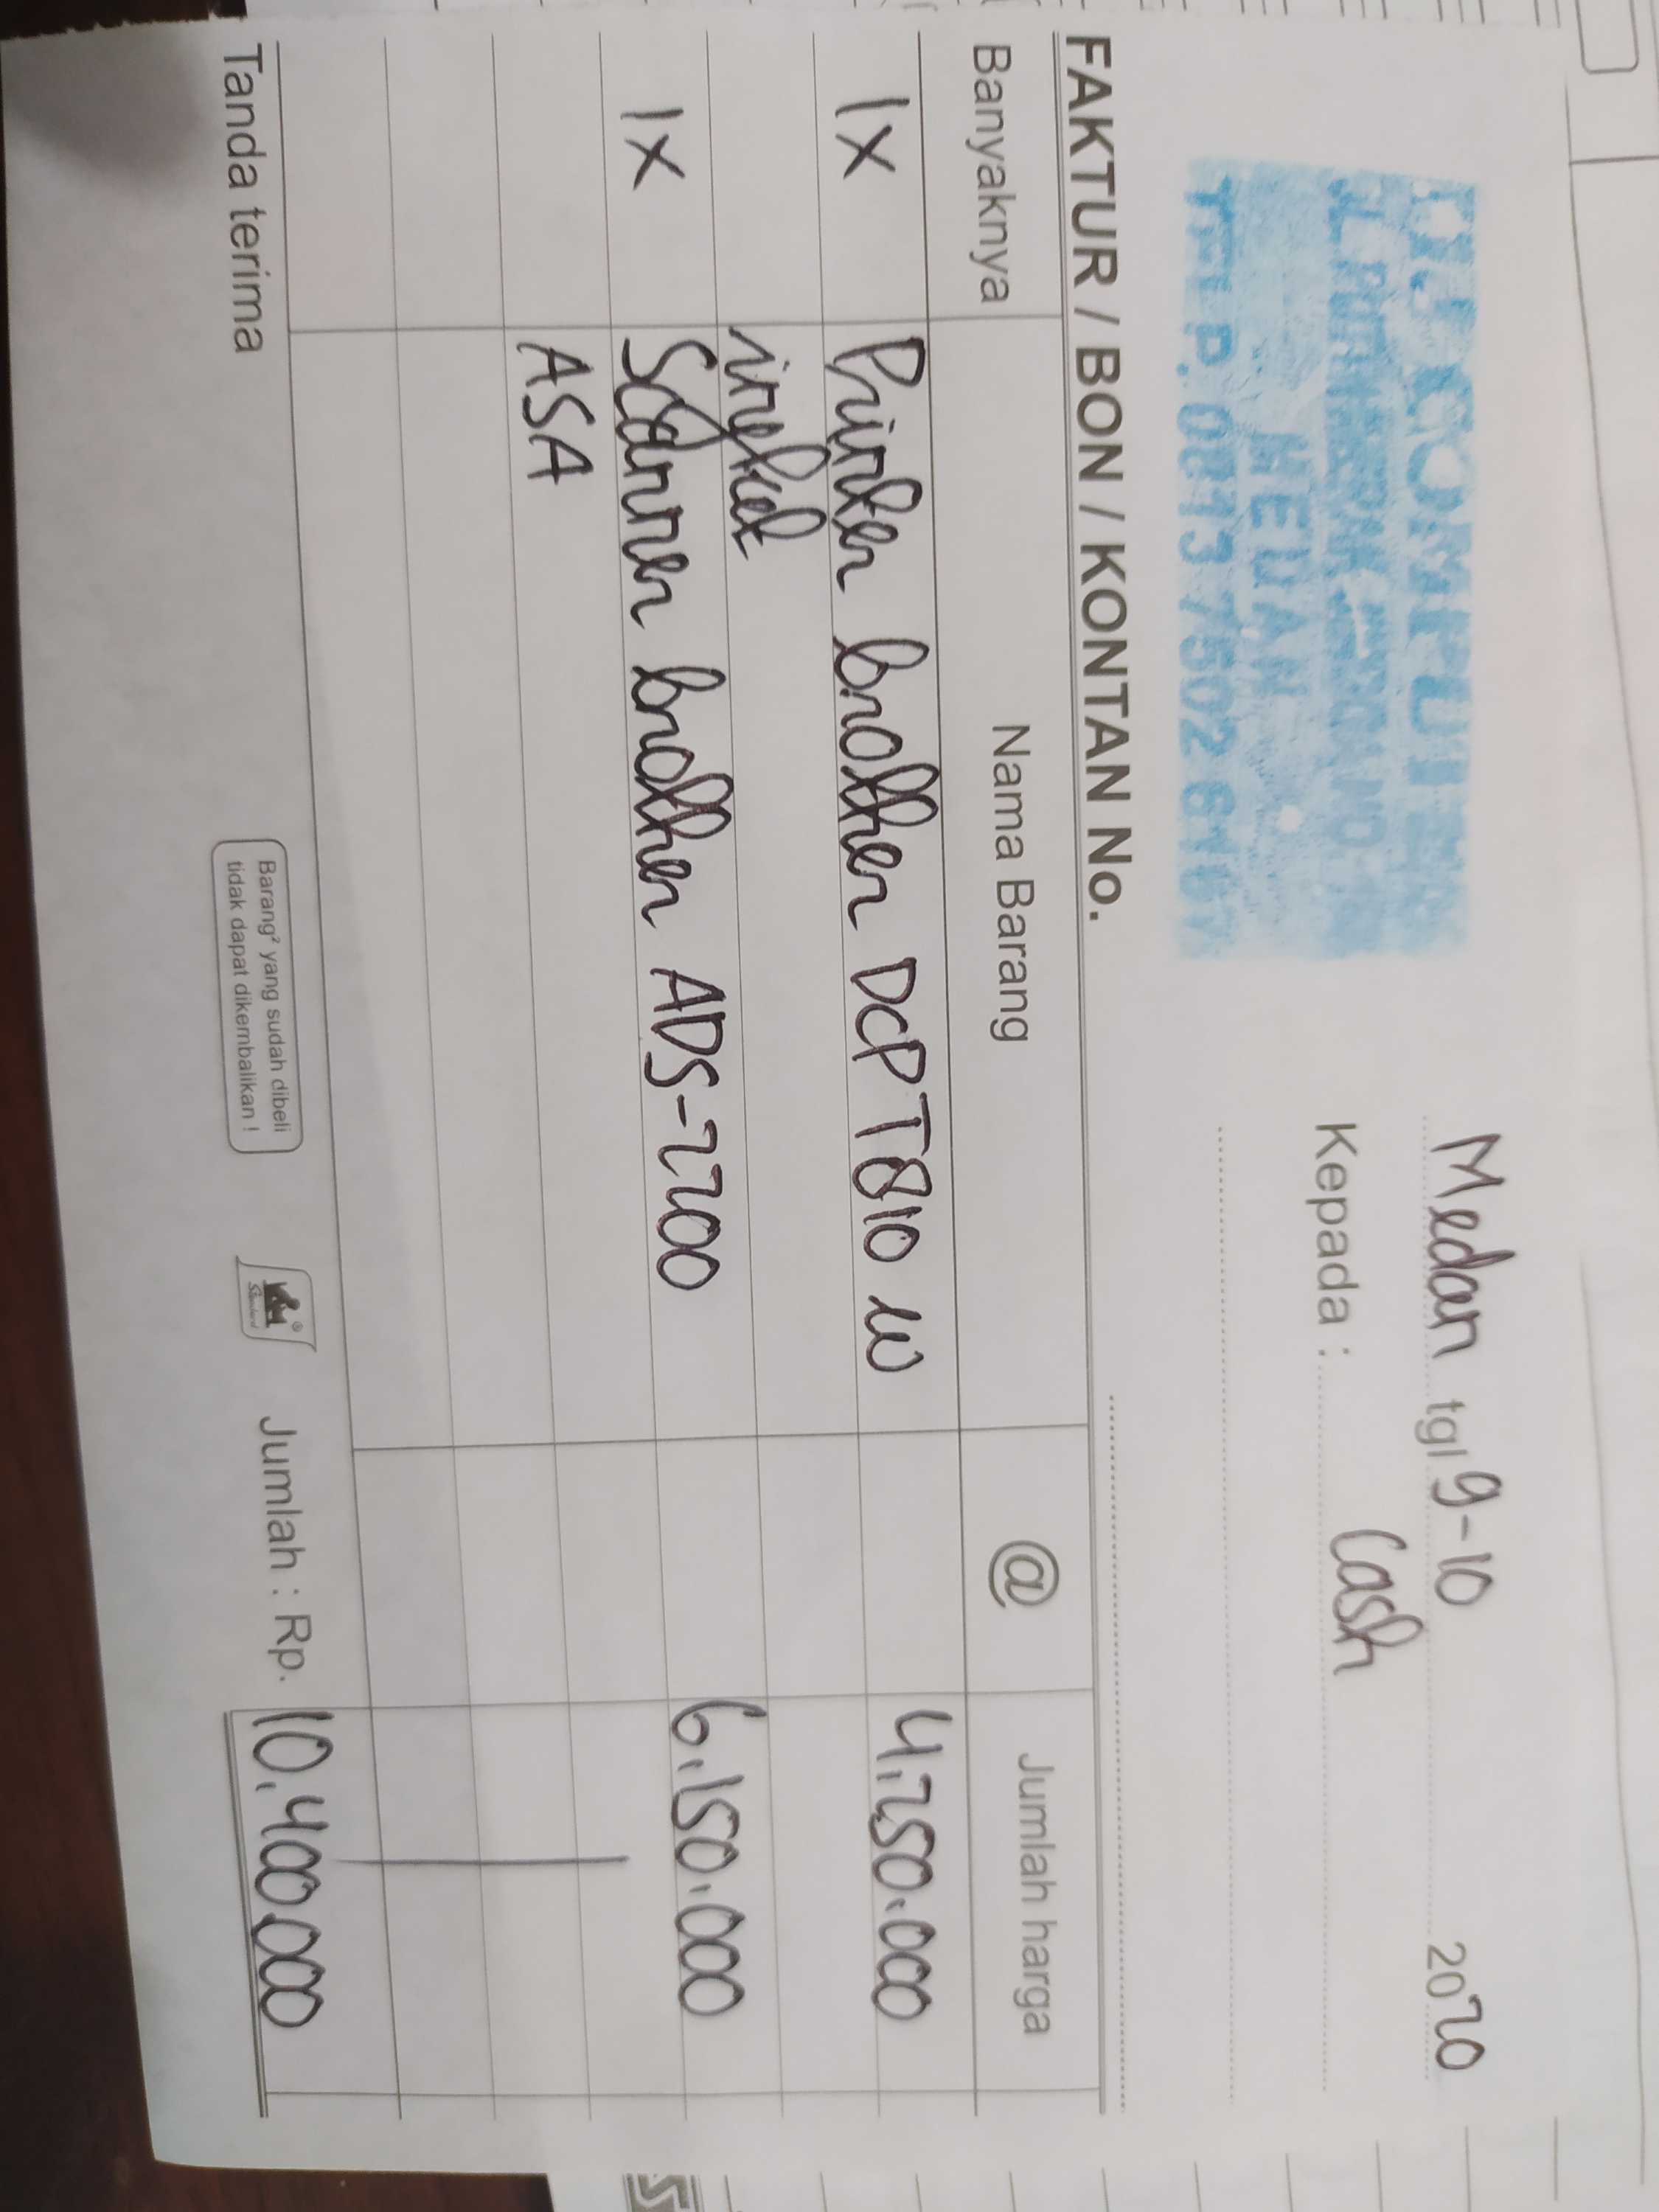 COMPUTER
MEDAN
TELP. 0813 7502 6167
Medan tgl 9-10 2020
Kepada : Cash
FAKTUR / BON / KONTAN No.
Banyaknya Nama Barang @ Jumlah harga
1x Printer brother DCP T810 W 4.250.000
inkjet
1x Scanner brother ADS-2200 6.150.000
ASA
Tanda terima
Barang² yang sudah dibeli
tidak dapat dikembalikan !
Jumlah : Rp. 10.400.000